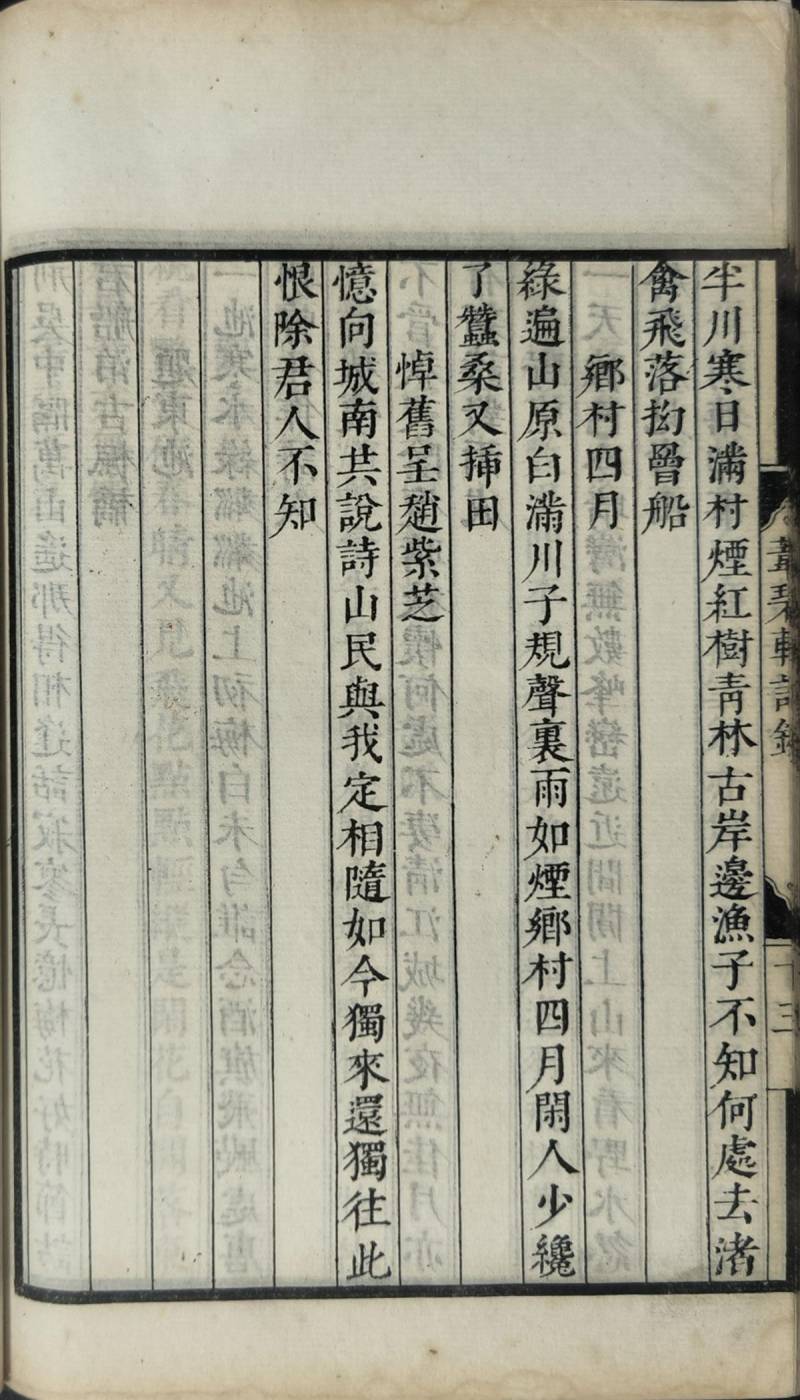 半川寒日滿村煙紅樹青林古岸邊漁子不知何處去渚
禽飛落拗罾船
鄉村四月
綠遍山原白滿川子規聲裏雨如煙鄉村四月閑人少纔
了蠶桑又揷田
悼舊呈趙紫芝
憶向城南共說詩山民與我定相隨如今獨來還獨往此
恨除君人不知
葦碧軒詩
十三